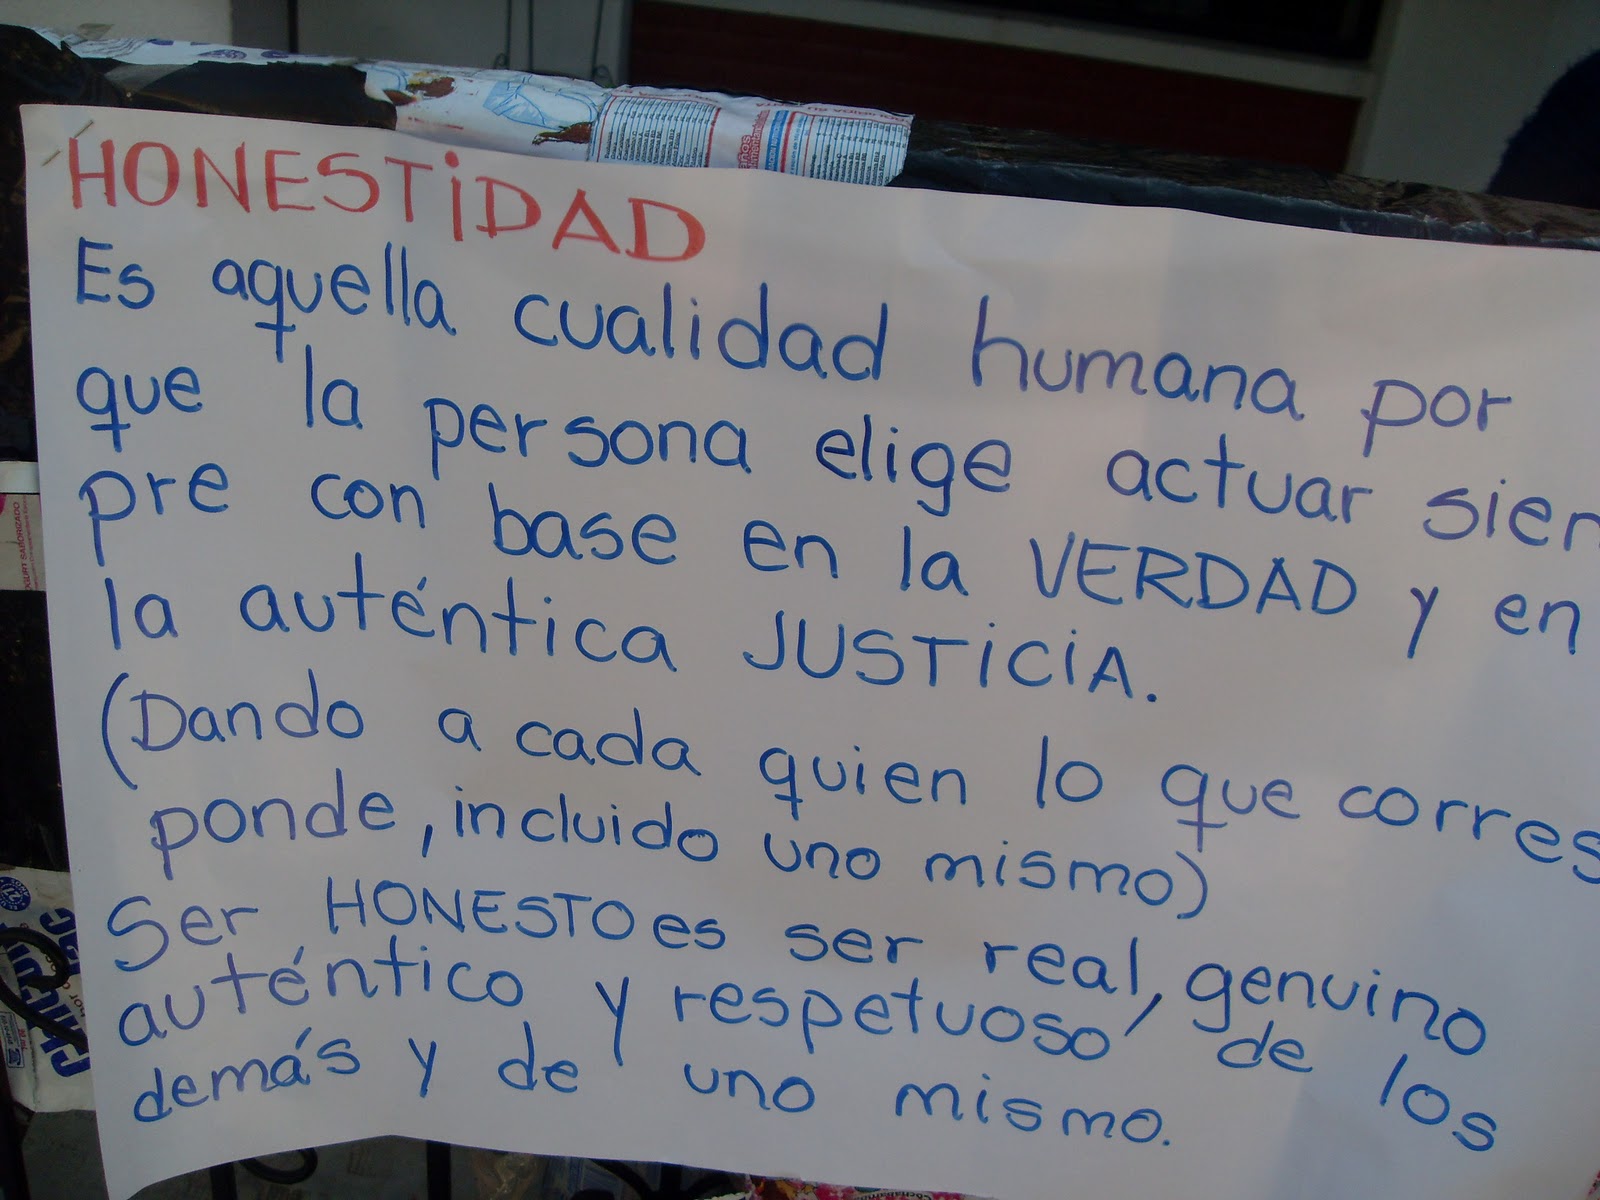 HONESTiDAD
Es aquella cualidad humana por
que la persona elige actuar siem
pre con base en la VERDAD y en
la auténtica JUSTiCiA.
(Dando a cada quien lo que corres
ponde, incluido uno mismo)
Ser HONESTO es ser real, genuino
auténtico y respetuoso de los
demás y de uno mismo.